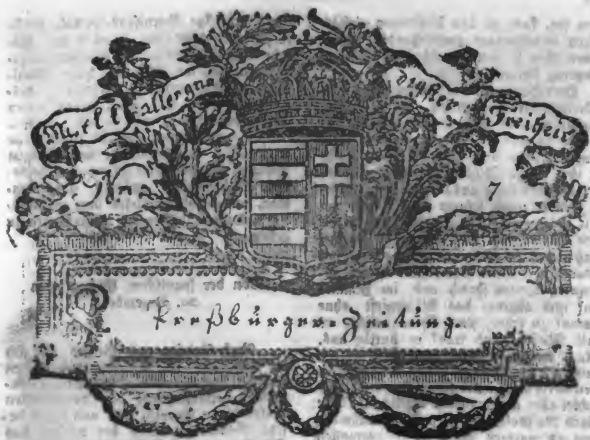 Mit allergnä digster Freiheit
Nro 7
Preßburger-Zeitung.